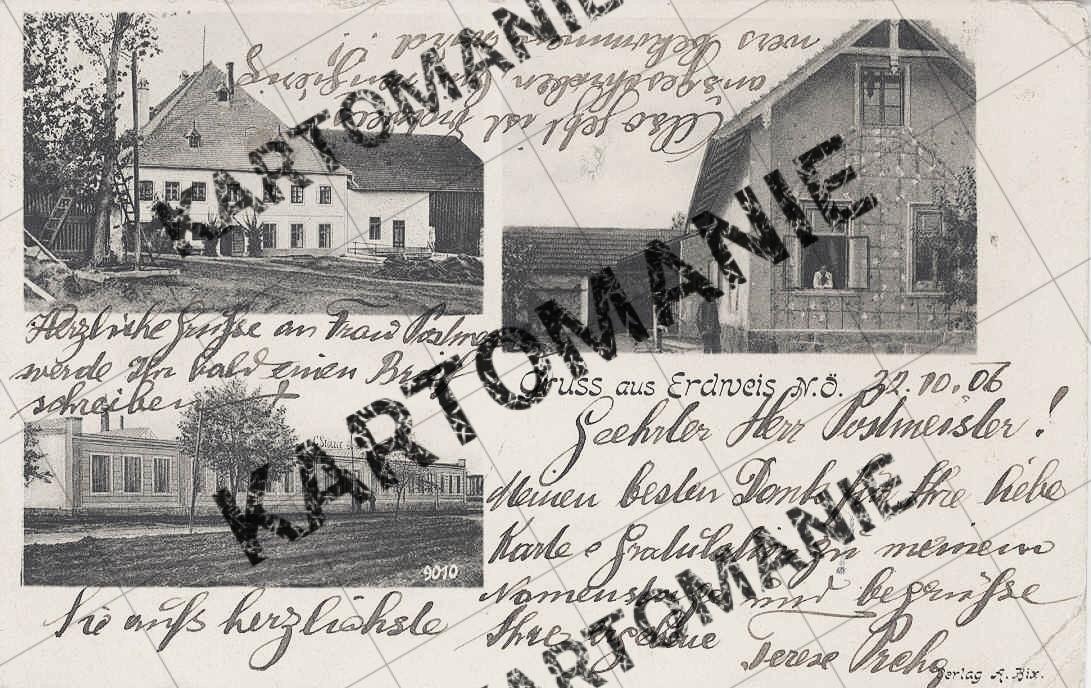 Also jetzt ist
ausgeschrieben
Herzliche Grüsse an Frau Postme
werde Ihr bald einen Brief
schreiben
Gruss aus Erdweis N.Ö. 22.10.06
Geehrter Herr Postmeister!
Meinen besten Dank für Ihre liebe
Karte Gratulation zu meinem
Namenstage und begrüsse
Sie aufs herzlichste
Ihre ergebene
Terese
9010
Verlag A. Bix.
KARTOMANIE
KARTOMANIE
KARTOMANIE